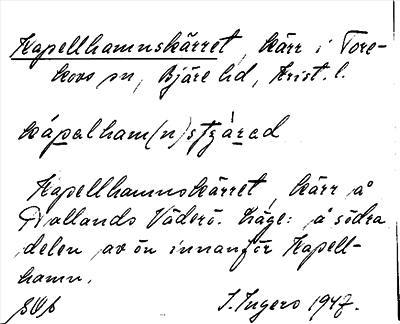 Kapellhamnskärret, kärr i Tore-
kovs sn, Bjäre hd, Krist. l.
kápalham(n)stȿàrad
Kapellhamnskärret, kärr på
Hallands Väderö. Läge: på södra
delen av ön innanför Kapell-
hamn.
I. Ingers 1947.